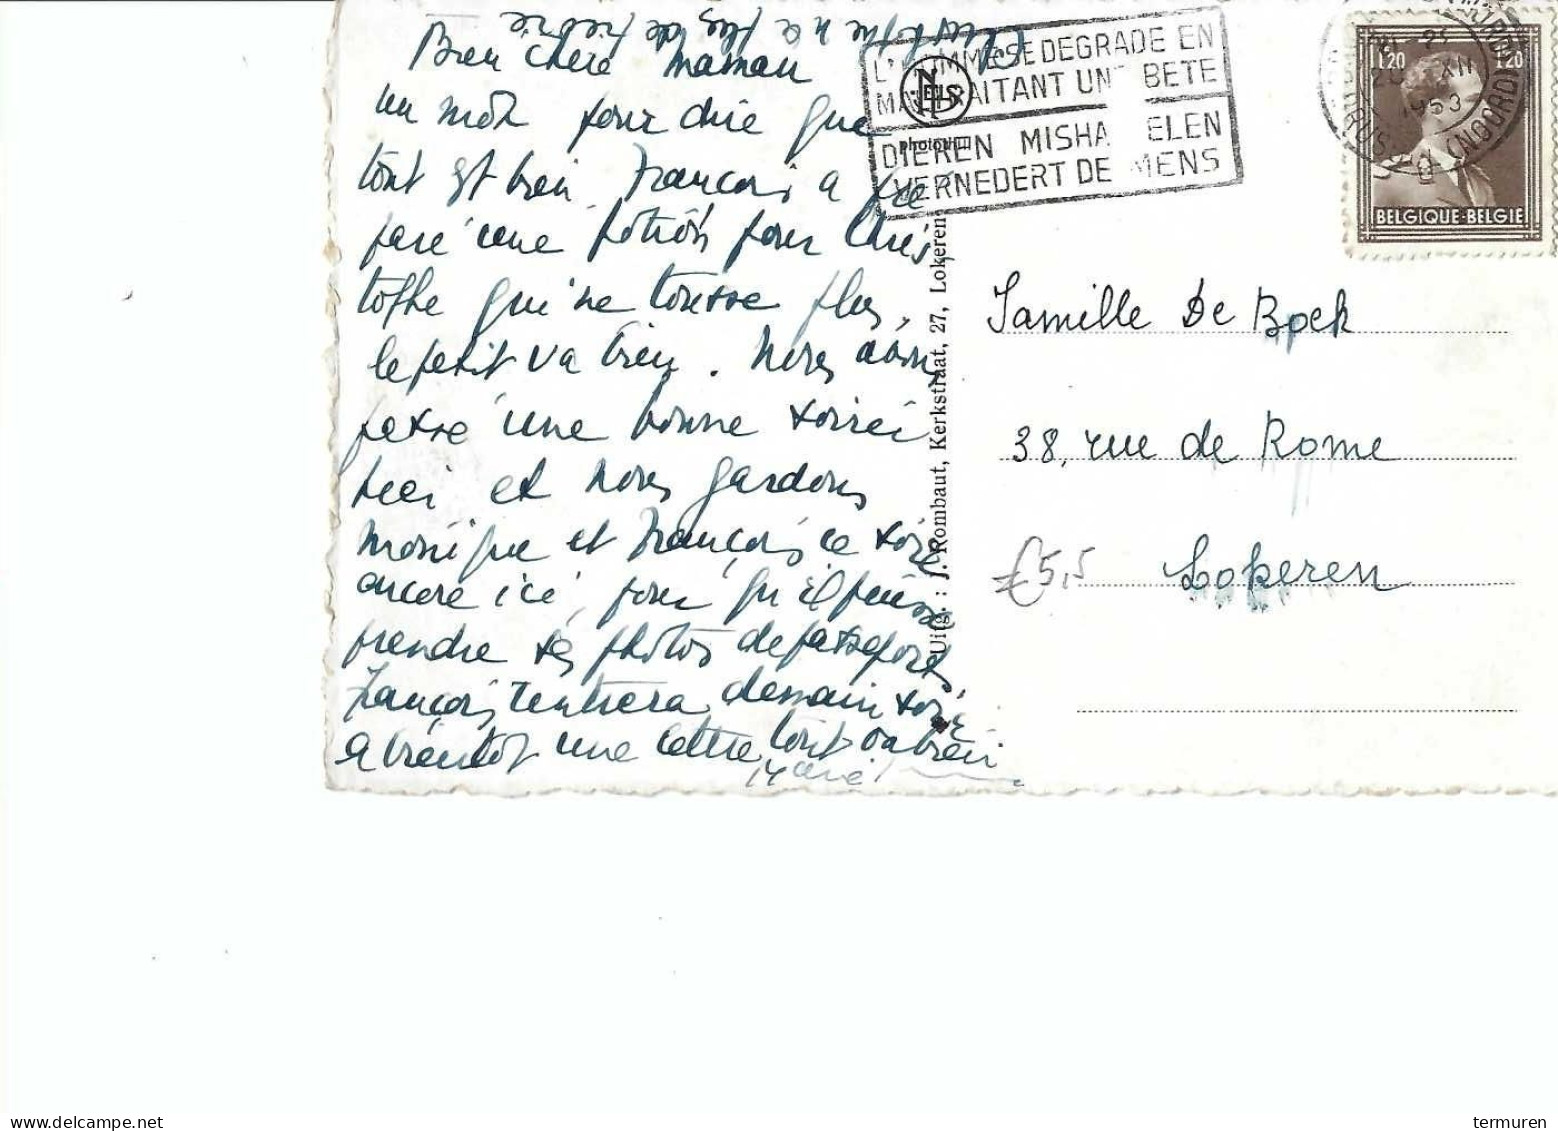 Christophe n'a plus de fièvre
Bien chère Maman
un mot pour dire que
tout est bien François a
une potion pour Chris
tophe qui ne tousse plus,
le petit va bien. Nous avons
une bonne soirée
ici et nous gardons
Monique et François ce soir
encore ici, pour qu'il puisse
prendre ses photos de passeport,
François rentrera demain soir
A bientôt une lettre, tout va bien
L'HOMME SE DEGRADE EN
MALTRAITANT UNE BETE
DIEREN MISHANDELEN
VERNEDERT DE MENS
NELS
photothill
1953
(NOORD)
1.20 1.20
BELGIQUE-BELGIE
Uitg. : J. Rombaut, Kerkstraat, 27, Lokeren
Famille De Boek
38, rue de Rome
£5,5
Lokeren
delcampe.net
termuren